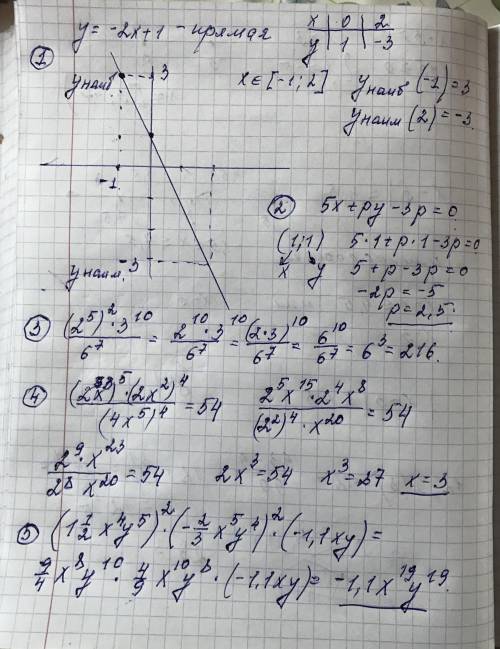 y = -2x+1 - прямая
x | 0 | 2
y | 1 | -3
① x∈[-1; 2] yнаиб (-1) = 3
yнаим (2) = -3.
yнаиб 3
-1
yнаим. -3
② 5x + py - 3p = 0
(1; 1) 5·1 + p·1 - 3p = 0
x y 5 + p - 3p = 0
-2p = -5
p = 2,5.
③ (2⁵)²·3¹⁰/6⁷ = 2¹⁰·3¹⁰/6⁷ = (2·3)¹⁰/6⁷ = 6¹⁰/6⁷ = 6³ = 216.
④ (2x³)⁵·(2x²)⁴/(4x⁵)⁴ = 54 2⁵x¹⁵·2⁴x⁸/(2²)⁴·x²⁰ = 54
2⁹·x²³/2⁸x²⁰ = 54 2x³ = 54 x³ = 27 x = 3
⑤ (1 1/2 x⁴y⁵)²·(-2/3 x⁵y⁴)²·(-1,1xy) =
9/4 x⁸y¹⁰·4/9 x¹⁰y⁸·(-1,1xy) = -1,1x¹⁹y¹⁹.